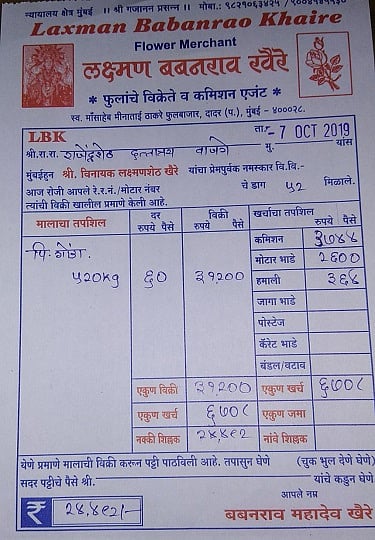 न्यायालय क्षेत्र मुंबई ॥ श्री गजानन प्रसन्न ॥ मोबा.:
Laxman Babanrao Khaire
Flower Merchant
लक्ष्मण बबनराव खैरे
* फुलांचे विक्रेते व कमिशन एजंट *
स्व. माँसाहेब मीनाताई ठाकरे फुलबाजार, दादर (प.), मुंबई - ४०००२८.
LBK ता.- 7 OCT 2019
श्री.रा.रा. राजेंद्रशेठ दत्तात्रय मु. यांस
मुंबईहुन श्री. विनायक लक्ष्मणशेठ खैरे यांचा प्रेमपुर्वक नमस्कार वि.वि.-
आज रोजी आपले रे.र.नं./मोटार नंबर चे डाग ५२ मिळाले.
त्यांची विक्री खालील प्रमाणे केली आहे.
मालाचा तपशिल दर रुपये पैसे विक्री रुपये पैसे खर्चाचा तपशिल
पि. गोंडा. कमिशन ३७४४
520kg ६० ३१,२०० मोटार भाडे 2600
हमाली ३६४
जागा भाडे
पोस्टेज
कॅरेट भाडे
बंडल/वटाव
एकुण विक्री ३१,२०० एकुण खर्च ६७०८
एकुण खर्च ६७०८ एकुण जमा
नक्की शिल्लक २४,४९२ नांवे शिल्लक
येणे प्रमाणे मालाची विक्री करून पट्टी पाठविली आहे. तपासुन घेणे (चुक भुल देणे घेणे)
सदर पट्टीचे पैसे श्री. यांचे कडुन घेणे
आपले नम्र
₹ २४,४९२/-
बबनराव महादेव खैरे